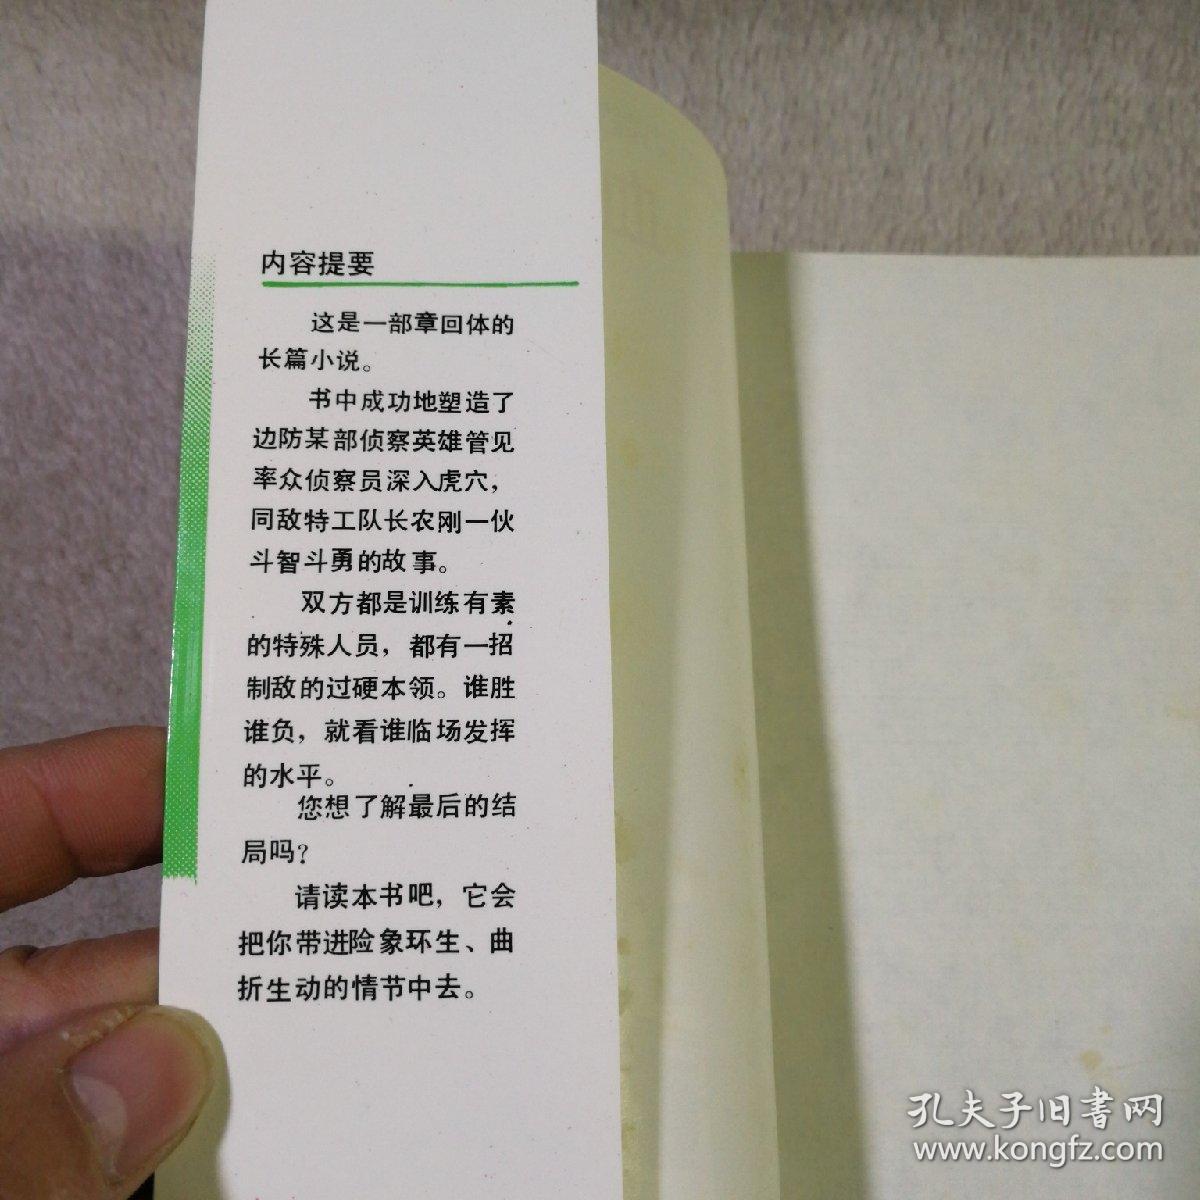 内容提要
这是一部章回体的
长篇小说。
书中成功地塑造了
边防某部侦察英雄管见
率众侦察员深入虎穴，
同敌特工队长农刚一伙
斗智斗勇的故事。
双方都是训练有素
的特殊人员，都有一招
制敌的过硬本领。谁胜
谁负，就看谁临场发挥
的水平。
您想了解最后的结
局吗？
请读本书吧，它会
把你带进险象环生、曲
折生动的情节中去。
孔夫子旧書网
www.kongfz.com